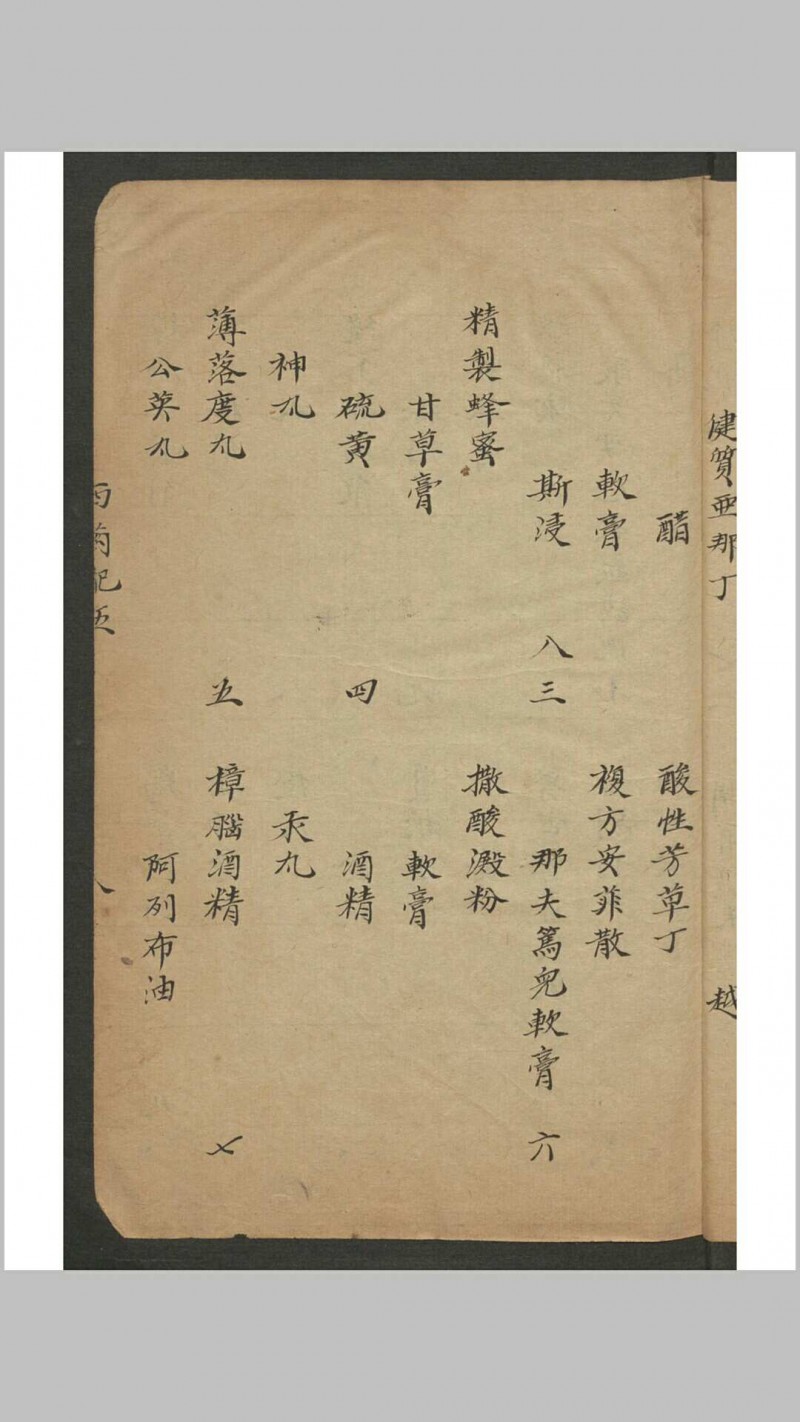 健質亜那丁 越
醋 酸性芳草丁
軟膏 複方安菲散
斯浸 八三 那夫篤児軟膏 六
精製蜂蜜 撒酸澱粉
甘草膏 軟膏
硫黄 四 酒精
神丸 汞丸
薄落度丸 五 樟腦酒精 七
公英丸 阿列布油